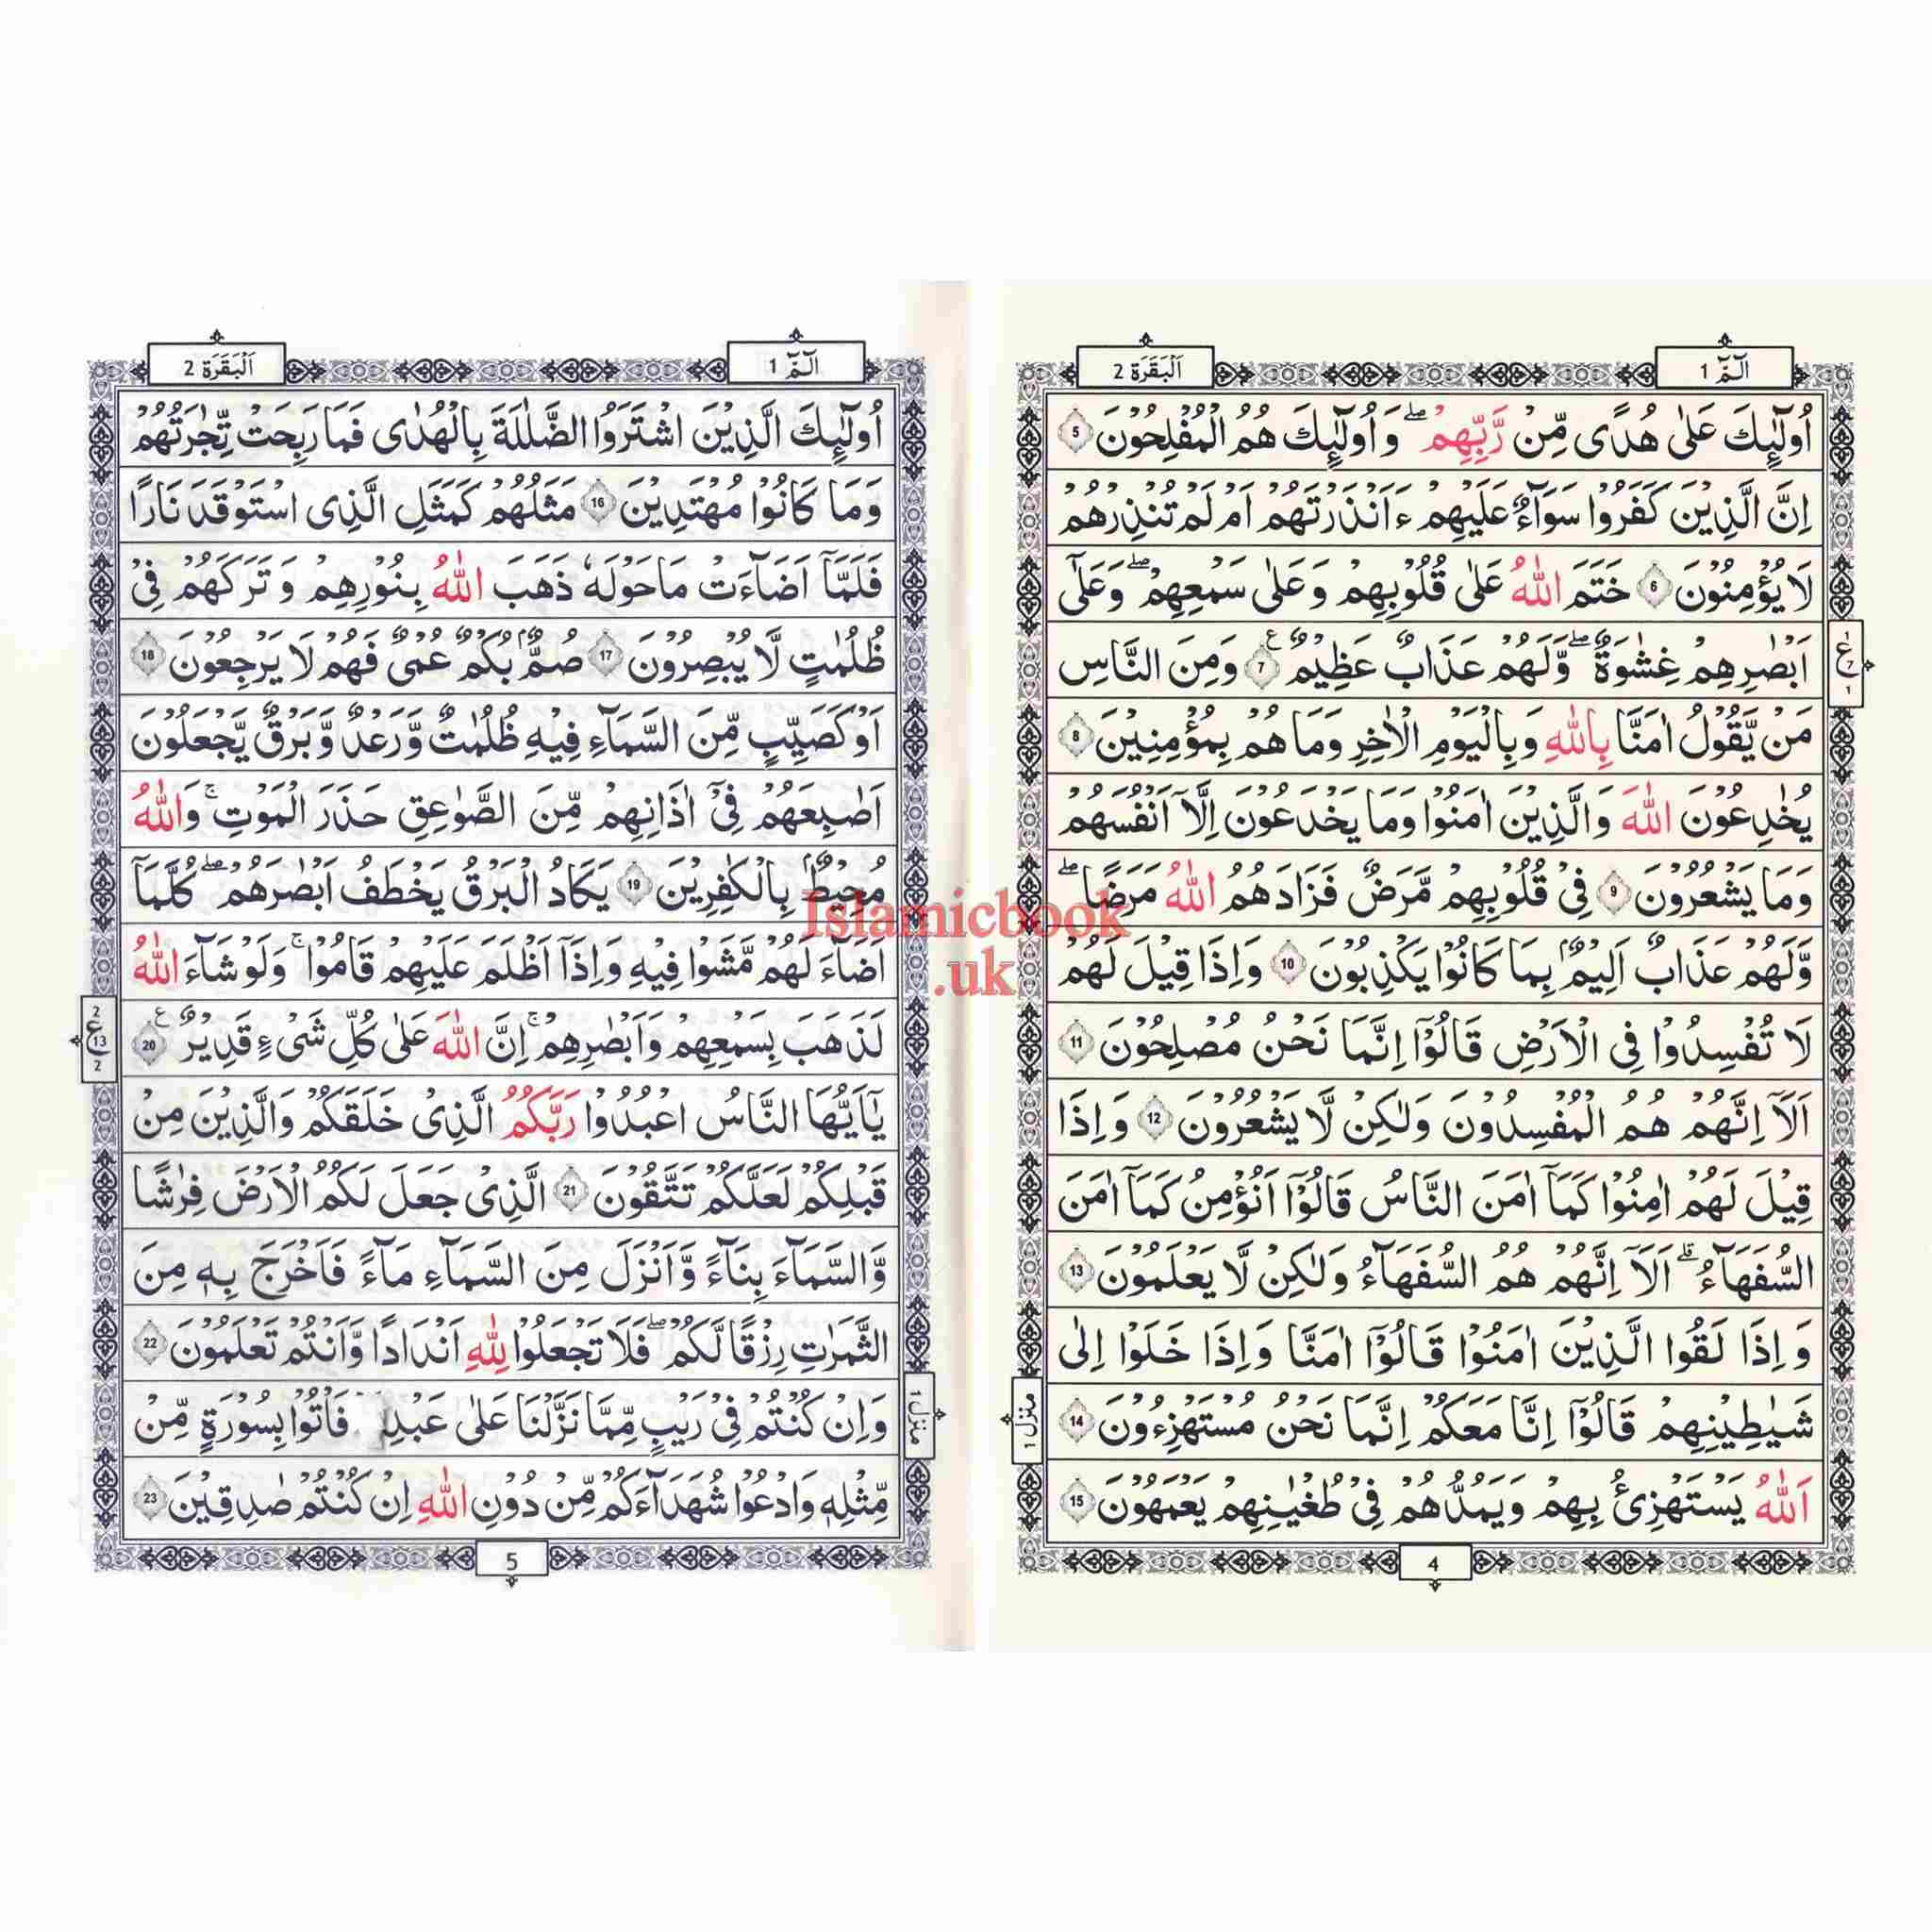 الٓمّٓ 1
اَلْبَقَرَة 2
اُولٰٓئِكَ عَلٰى هُدًى مِّنْ رَّبِّهِمْ ۖ وَاُولٰٓئِكَ هُمُ الْمُفْلِحُوْنَ 5
اِنَّ الَّذِيْنَ كَفَرُوْا سَوَآءٌ عَلَيْهِمْ ءَاَنْذَرْتَهُمْ اَمْ لَمْ تُنْذِرْهُمْ
لَا يُؤْمِنُوْنَ 6 خَتَمَ اللّٰهُ عَلٰى قُلُوْبِهِمْ وَعَلٰى سَمْعِهِمْ ۖ وَعَلٰٓى
اَبْصٰرِهِمْ غِشٰوَةٌ ۖ وَّلَهُمْ عَذَابٌ عَظِيْمٌ 7 ع وَمِنَ النَّاسِ
1 ع 7 1
مَنْ يَّقُوْلُ اٰمَنَّا بِاللّٰهِ وَبِالْيَوْمِ الْاٰخِرِ وَمَا هُمْ بِمُؤْمِنِيْنَ 8
يُخٰدِعُوْنَ اللّٰهَ وَالَّذِيْنَ اٰمَنُوْا وَمَا يَخْدَعُوْنَ اِلَّآ اَنْفُسَهُمْ
وَمَا يَشْعُرُوْنَ 9 فِيْ قُلُوْبِهِمْ مَّرَضٌ فَزَادَهُمُ اللّٰهُ مَرَضًا ۖ
وَّلَهُمْ عَذَابٌ اَلِيْمٌ بِمَا كَانُوْا يَكْذِبُوْنَ 10 وَاِذَا قِيْلَ لَهُمْ
لَا تُفْسِدُوْا فِى الْاَرْضِ قَالُوْٓا اِنَّمَا نَحْنُ مُصْلِحُوْنَ 11
اَلَآ اِنَّهُمْ هُمُ الْمُفْسِدُوْنَ وَلٰكِنْ لَّا يَشْعُرُوْنَ 12 وَاِذَا
قِيْلَ لَهُمْ اٰمِنُوْا كَمَآ اٰمَنَ النَّاسُ قَالُوْٓا اَنُؤْمِنُ كَمَآ اٰمَنَ
السُّفَهَآءُ ۗ اَلَآ اِنَّهُمْ هُمُ السُّفَهَآءُ وَلٰكِنْ لَّا يَعْلَمُوْنَ 13
وَاِذَا لَقُوا الَّذِيْنَ اٰمَنُوْا قَالُوْٓا اٰمَنَّا وَاِذَا خَلَوْا اِلٰى
شَيٰطِيْنِهِمْ قَالُوْٓا اِنَّا مَعَكُمْ اِنَّمَا نَحْنُ مُسْتَهْزِءُوْنَ 14
منزل 1
اَللّٰهُ يَسْتَهْزِئُ بِهِمْ وَيَمُدُّهُمْ فِيْ طُغْيٰنِهِمْ يَعْمَهُوْنَ 15
4
الٓمّٓ 1
اَلْبَقَرَة 2
اُولٰٓئِكَ الَّذِيْنَ اشْتَرَوُا الضَّلٰلَةَ بِالْهُدٰى فَمَا رَبِحَتْ تِّجٰرَتُهُمْ
وَمَا كَانُوْا مُهْتَدِيْنَ 16 مَثَلُهُمْ كَمَثَلِ الَّذِى اسْتَوْقَدَ نَارًا
فَلَمَّآ اَضَآءَتْ مَا حَوْلَهٗ ذَهَبَ اللّٰهُ بِنُوْرِهِمْ وَتَرَكَهُمْ فِيْ
ظُلُمٰتٍ لَّا يُبْصِرُوْنَ 17 صُمٌّۢ بُكْمٌ عُمْىٌ فَهُمْ لَا يَرْجِعُوْنَ 18
اَوْ كَصَيِّبٍ مِّنَ السَّمَآءِ فِيْهِ ظُلُمٰتٌ وَّرَعْدٌ وَّبَرْقٌ يَّجْعَلُوْنَ
اَصٰبِعَهُمْ فِيْٓ اٰذَانِهِمْ مِّنَ الصَّوٰعِقِ حَذَرَ الْمَوْتِ ۚ وَاللّٰهُ
مُحِيْطٌۢ بِالْكٰفِرِيْنَ 19 يَكَادُ الْبَرْقُ يَخْطَفُ اَبْصٰرَهُمْ ۖ كُلَّمَآ
اَضَآءَ لَهُمْ مَّشَوْا فِيْهِ وَاِذَآ اَظْلَمَ عَلَيْهِمْ قَامُوْا ۚ وَلَوْ شَآءَ اللّٰهُ
لَذَهَبَ بِسَمْعِهِمْ وَاَبْصٰرِهِمْ ۚ اِنَّ اللّٰهَ عَلٰى كُلِّ شَىْءٍ قَدِيْرٌ 20 ع
2 ع 13 2
يٰٓاَيُّهَا النَّاسُ اعْبُدُوْا رَبَّكُمُ الَّذِىْ خَلَقَكُمْ وَالَّذِيْنَ مِنْ
قَبْلِكُمْ لَعَلَّكُمْ تَتَّقُوْنَ 21 الَّذِىْ جَعَلَ لَكُمُ الْاَرْضَ فِرٰشًا
وَّالسَّمَآءَ بِنَآءً وَّاَنْزَلَ مِنَ السَّمَآءِ مَآءً فَاَخْرَجَ بِهٖ مِنَ
الثَّمَرٰتِ رِزْقًا لَّكُمْ ۖ فَلَا تَجْعَلُوْا لِلّٰهِ اَنْدَادًا وَّاَنْتُمْ تَعْلَمُوْنَ 22
وَاِنْ كُنْتُمْ فِيْ رَيْبٍ مِّمَّا نَزَّلْنَا عَلٰى فَاْتُوْا بِسُوْرَةٍ مِّنْ
منزل 1
مِّثْلِهٖ وَادْعُوْا شُهَدَآءَكُمْ مِّنْ دُوْنِ اللّٰهِ اِنْ كُنْتُمْ صٰدِقِيْنَ 23
5
Islamicbook
.uk